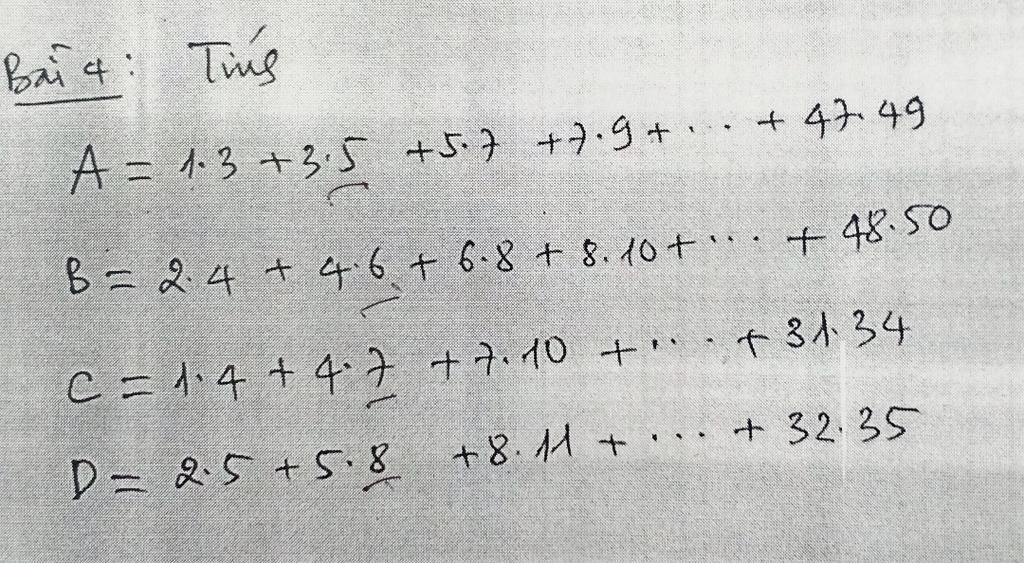 Bài 4: Tính
A = 1.3 + 3.5 + 5.7 + 7.9 + ... + 47.49
B = 2.4 + 4.6 + 6.8 + 8.10 + ... + 48.50
C = 1.4 + 4.7 + 7.10 + ... + 31.34
D = 2.5 + 5.8 + 8.11 + ... + 32.35